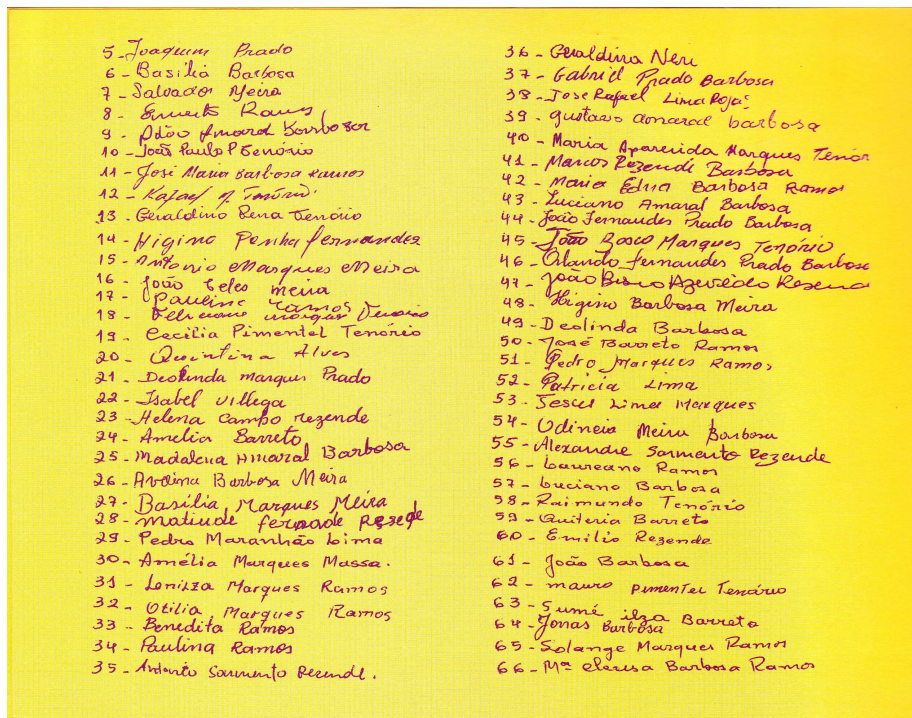 5 - Joaquim Prado
6 - Basilia Barbosa
7 - Salvador Meira
8 - Ernesto Ramos
9 - Adão Amaral Barbosa
10 - João Paulo P Tenório
11 - José Maria Barbosa Ramos
12 - Rafael Tenório.
13 - Geraldino Pena Tenório
14 - Higino Penha fernandez
15 - Antonio Marques Meira
16 - João Celes meira
17 - Pauline Ramos
18 - marques
19 - Cecilia Pimentel Tenório
20 - Quintina Alves
21 - Deolinda marques Prado
22 - Isabel villega
23 - Helena Campo rezende
24 - Amelia Barreto
25 - Madalena Amaral Barbosa
26 - Avelina Barbosa Meira
27 - Basilia Marques Meira
28 - matiude Rezede
29 - Pedro Maranhão Lima
30 - Amélia Marques Massa.
31 - Lenizza Marques Ramos
32 - Otilia Marques Ramos
33 - Benedita Ramos
34 - Paulina Ramos
35 - Antonio Sarmento Rezende.
36 - Geraldina Neri
37 - Gabriel Prado Barbosa
38 - Jose Rafael Lima Rojas
39 - gustavo amaral barbosa
40 - Maria Aparecida Marques Tenor
41 - Marcos Rezende Barbosa
42 - Maria Edna Barbosa Ramos
43 - Luciano Amaral Barbosa
44 - João Fernandes Prado Barbosa
45 - João Bosco Marques Tenório
46 - Orlando Fernandes Prado Barbosa
47 - João Azevêdo Resend
48 - Higino Barbosa Meira
49 - Deolinda Barbosa
50 - José Barreto Ramos
51 - Pedro Marques Ramos
52 - Patricia Lima
53 - Jesus Lima Marques
54 - Udineia Meira Barbosa
55 - Alexandre Sarmento Rezende
56 - Laureano Ramos
57 - Luciano Barbosa
58 - Raimundo Tenório
59 - Quiteria Barreto
60 - Emilio Rezende
61 - João Barbosa
62 - mauro pimentel Tenário
63 - Sumé ilza Barreto
64 - Jonas Barbosa
65 - Solange Marques Ramos
66 - Mª Barbosa Ramos